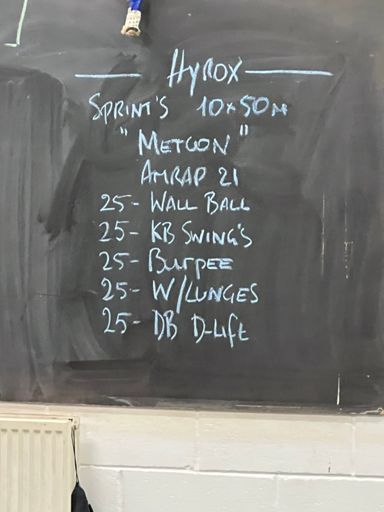 Hyrox
Sprint's 10x50m
"Metcon"
Amrap 21
25- Wall Ball
25- KB Swing's
25- Burpee
25- W/Lunges
25- DB D-Lift